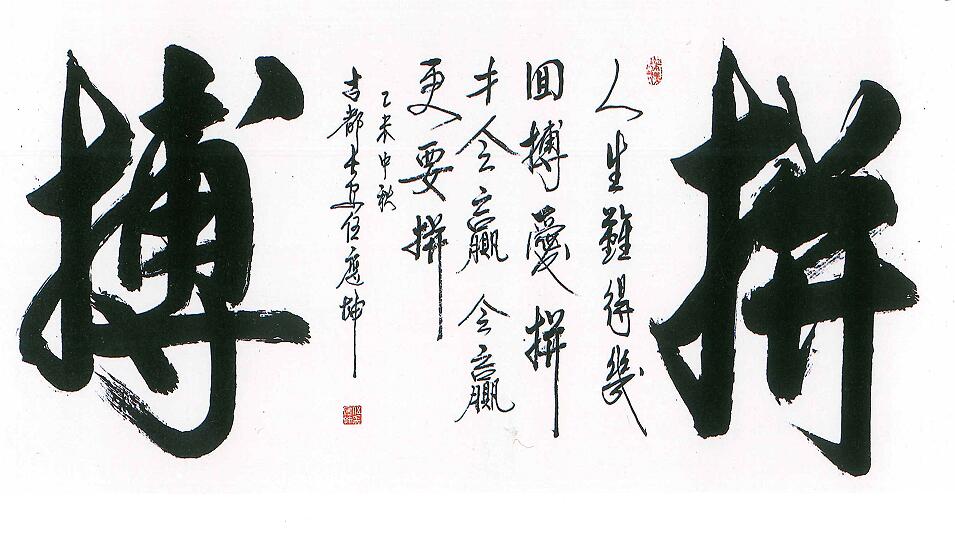 拼
人生難得幾
回搏愛拼
才会贏会贏
更要拼
乙未中秋
古都长安任应坤
搏